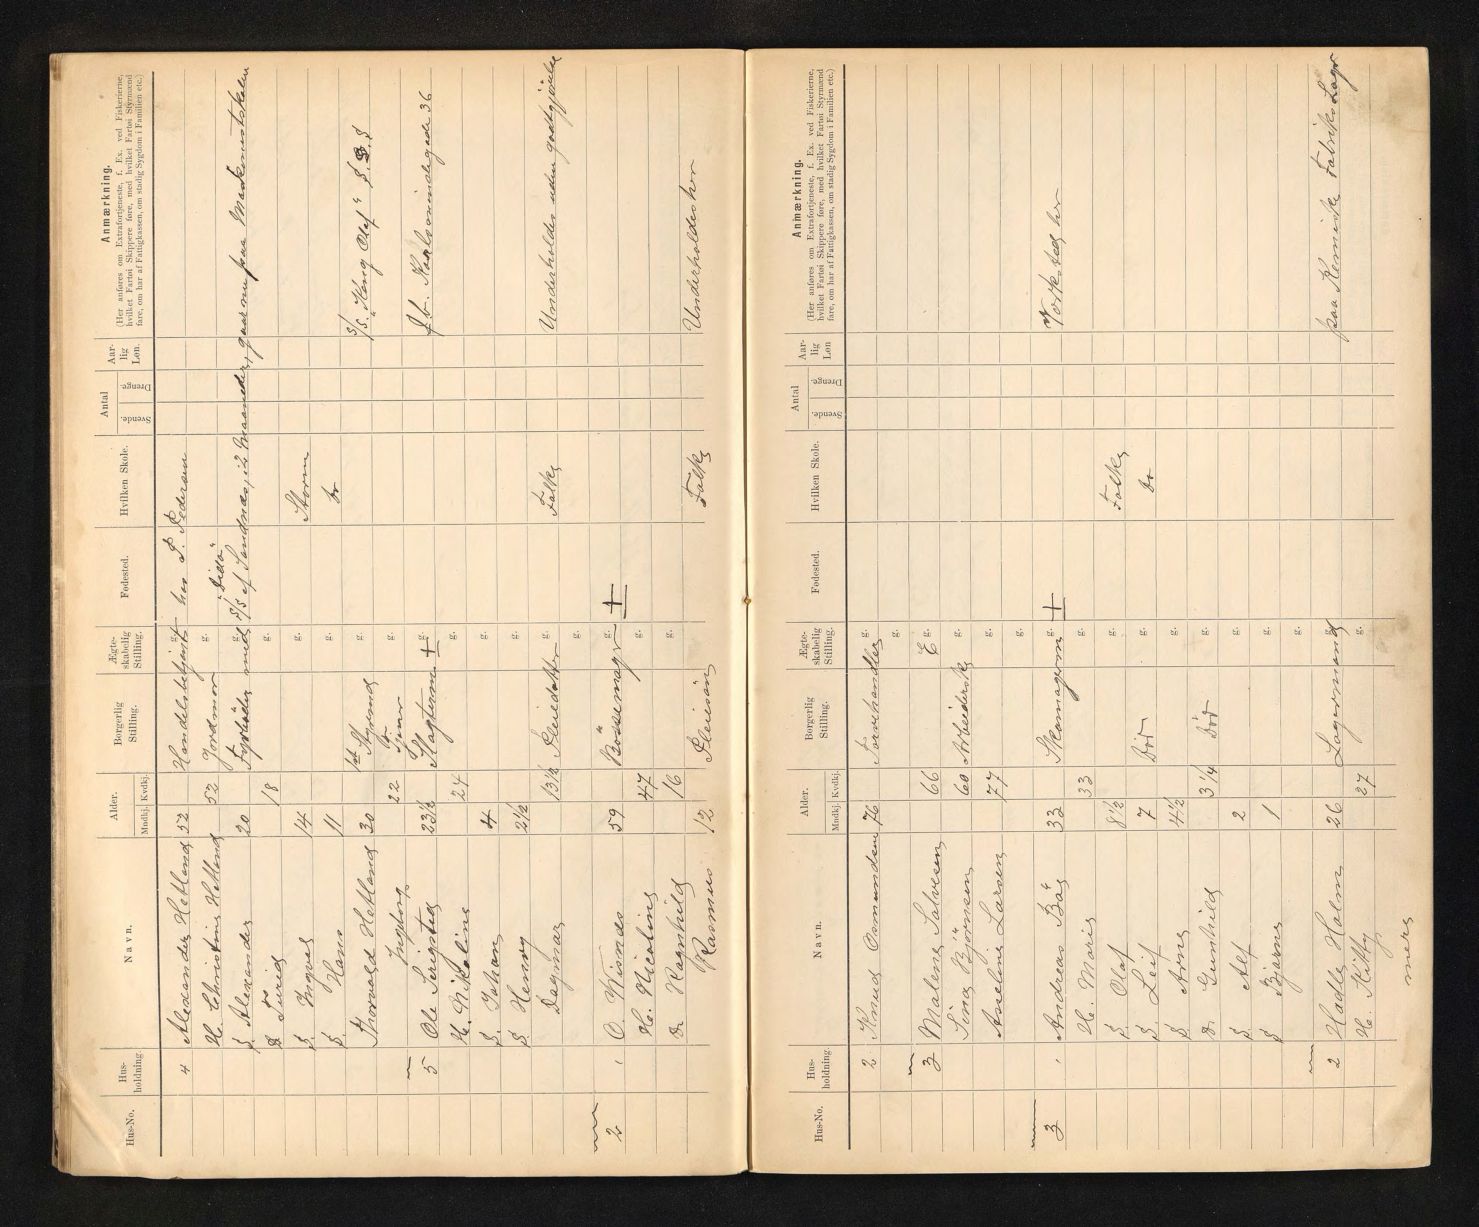 Hus-No. Hus-holdning. Navn. Alder. Mndkj. Kvdkj. Borgerlig Stilling. Ægte-skabelig Stilling. Fødested. Hvilken Skole. Antal Svende. Drenge. Aar-lig Løn. Anmærkning.
(Her anføres om Extrafortjeneste, f. Ex. ved Fiskerierne, hvilket Fartøi Skippere føre, med hvilket Fartøi Styrmænd fare, om har af Fattigkassen, om stadig Sygdom i Familien etc.)
4 Alexander Hetland 52 Handelsbetjent g. hos P. Pedersen
H. Christine Hetland 52 Jordmor g. "Dido"
S. Alexander 20 Fyrbøder med g. s/s af Sandnæs, i 2 Maaneder, gaar nu paa Maskinistskolen
D do Surid 18 g.
S. Ingval 14 g. Storm
S. Hans 11 g. do
Thorvald Hetland 30 1st Styrmand g. s/s "Kong Olaf" S. D. S
Ingborg 22 Tjener g.
5 Ole Serigstad 23½ Slagterm g. + f b. Karlsmindegade 36
H. Nikoline 24 g.
S. Johan 4 g.
S Henry 2½ g.
Dagmar 13½ Pleiedatter g. Folks Underholdes uden godtgjørelse
g.
2 1 O. Wisnes 59 Bössemager g. +
H. Nicoline 47 g.
D. Ragnhild 16 g.
Rasmus 12 Pleiesön Folks Underholdes her
Hus-No. Hus-holdning. Navn. Alder. Mndkj. Kvdkj. Borgerlig Stilling. Ægte-skabelig Stilling. Fødested. Hvilken Skole. Antal Svende. Drenge. Aar-lig Løn Anmærkning.
(Her anføres om Extrafortjeneste, f. Ex. ved Fiskerierne, hvilket Fartøi Skippere føre, med hvilket Fartøi Styrmænd fare, om har af Fattigkassen, om stadig Sygdom i Familien etc.)
2 Knud Osmundsen 76 Torvhandler g.
g.
3 Malene Salvesen 66 E g.
Sina Björnsen 60 Arbeiderske g.
Aneline Larsen 77 g.
g.
3 1 Andreas Bög 33 Skomagerm g. + Verksted her
H. Marie 33 g.
S. Olaf 8½ g. Folks
S. Leif 7 Död g. do
S Arne 4½ g.
D. Gunhild 3¼ Död g.
S Alf 2 g.
S Bjarne 1 g.
g.
2 Hagle Holm 26 Lagermand g. paa Kemiske Fabriks Lager
H. Kitty 27 g.
mere